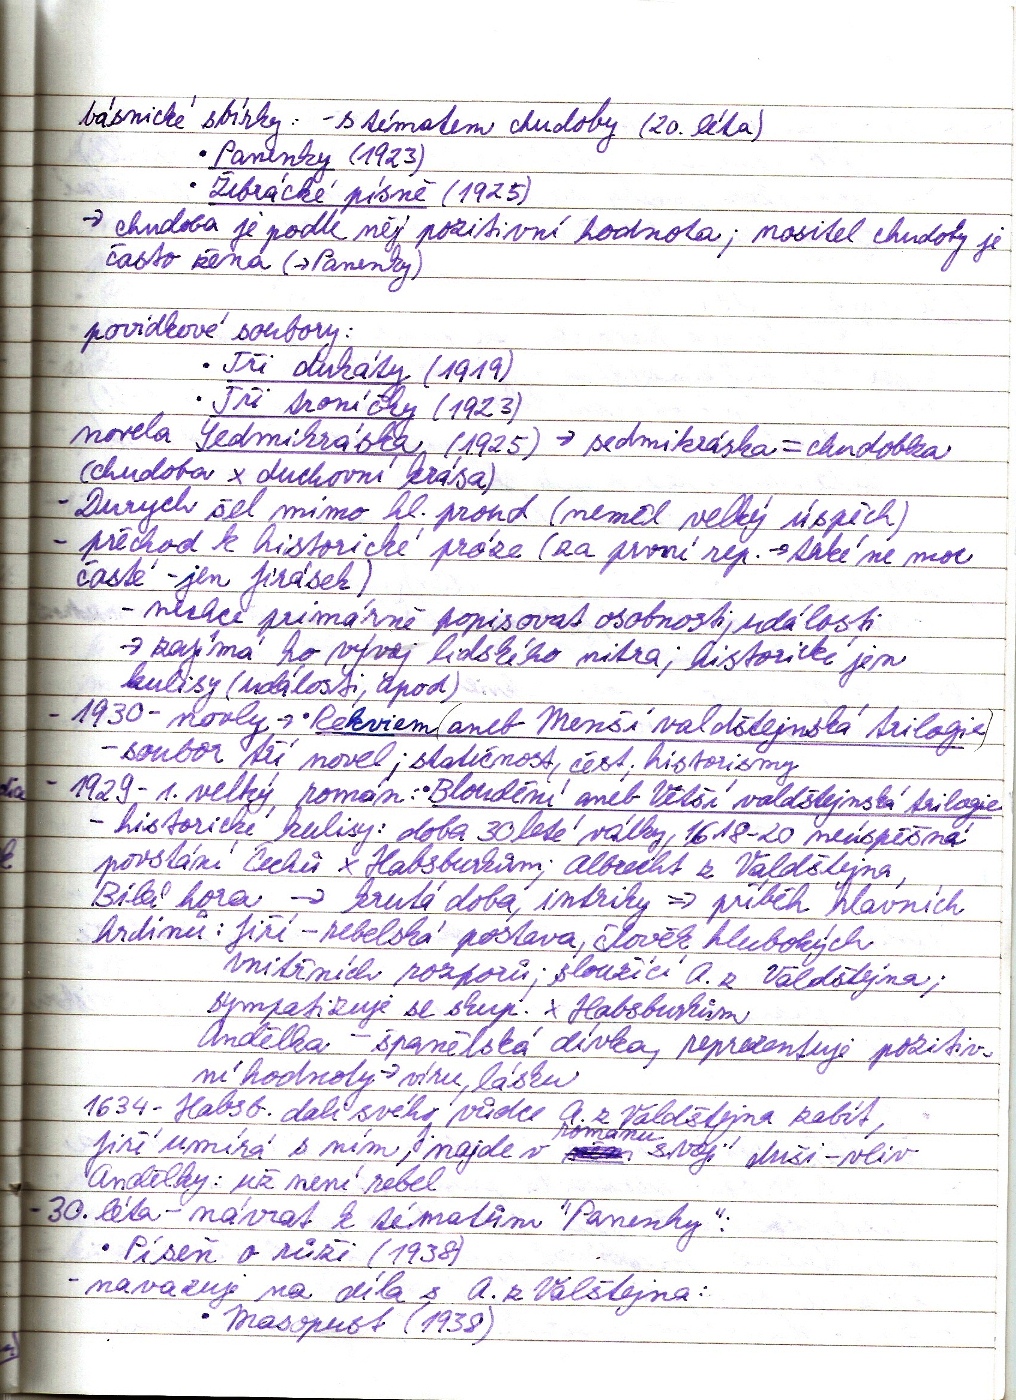 básnické sbírky: - s tématem chudoby (20. léta)
• Panenky (1923)
• Žebrácké písně (1925)
→ chudoba je podle něj pozitivní hodnota; nositel chudoby je
často žena (→ Panenky)
povídkové soubory:
• Tři dukáty (1919)
• Tři troníčky (1923)
novela Sedmikráska (1925) → sedmikráska = chudobka
(chudoba x duchovní krása)
- Durych šel mimo hl. proud (neměl velký úspěch)
- přechod k historické próze (za první rep. → také ne moc
časté - jen Jirásek)
- nechce primárně popisovat osobnosti, události
→ zajímá ho vývoj lidského nitra; historické jen
kulisy (události, apod)
- 1930 - novly → • Rekviem (aneb Menší valdštejnská trilogie)
- soubor tří novel; statičnost, čest, historismy
- 1929 - 1. velký román: • Bloudění aneb Větší valdštejnská trilogie
- historické kulisy: doba 30leté války, 1618-20 neúspěšná
povstání Čechů x Habsburkům; Albrecht z Valdštejna,
Bílá hora → krutá doba, intriky => příběh hlavních
hrdinů: Jiří - rebelská postava, člověk hlubokých
vnitřních rozporů; sloužící A. z Valdštejna;
sympatizuje se skup. x Habsburkům
Andělka - španělská dívka, reprezentuje pozitiv-
ní hodnoty → víru, lásku
1634 - Habsb. dali svého vůdce A. z Valdštejna zabít,
Jiří umírá s ním; najde v románu svojí duši - vliv
Andělky: už není rebel
- 30. léta - návrat k tématům "Panenky":
• Píseň o růži (1938)
- navazuje na díla s A. z Valštejna:
• Masopust (1938)